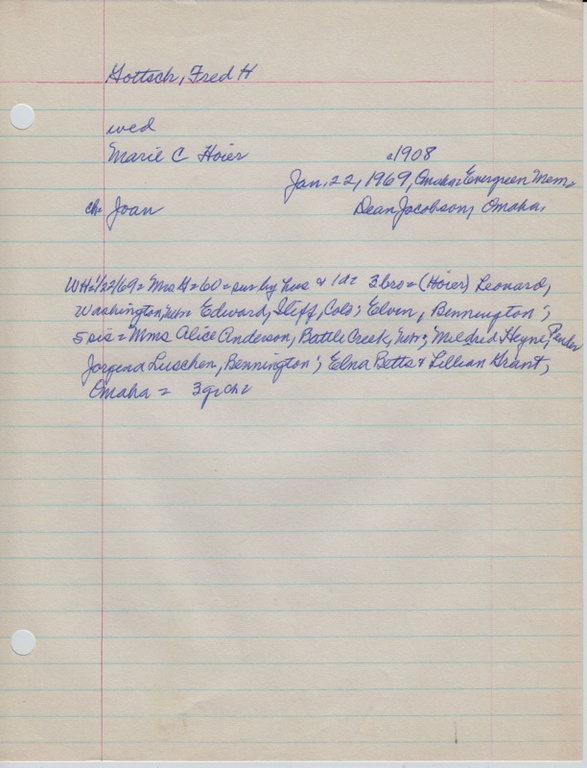 Gottsch, Fred H
wed
Marie C Hoier c1908
Jan. 22, 1969, Omaha: Evergreen Mem.
ch. Joan Dean Jacobson, Omaha,
1/29/69 = Mrs G = 60 = sur by hus & 1 d = 3 bro = (Hoier) Leonard,
Washington, Edward, Iliff, Colo; Elven, Bennington;
5 sis = Mmes Alice Anderson, Battle Creek, Mildred Heyne, Pender
Jorgena Luschen, Bennington; Elna Betts & Lillian Grant,
Omaha = 3 gr ch =